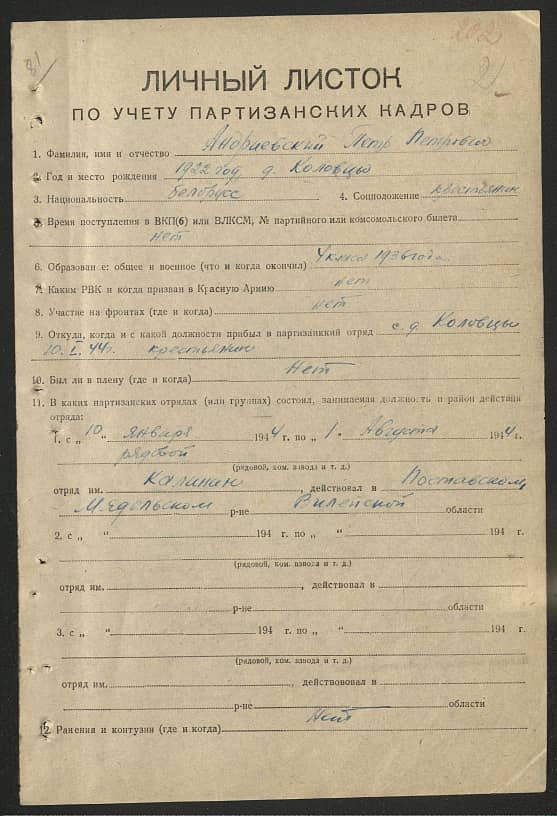 81
202
ЛИЧНЫЙ ЛИСТОК
ПО УЧЕТУ ПАРТИЗАНСКИХ КАДРОВ
1. Фамилия, имя и отчество Андриевский Петр Петрович
2. Год и место рождения 1922 год д. Коловцы
3. Национальность белорусс 4. Соцположение крестьянин
5. Время поступления в ВКП(б) или ВЛКСМ, № партийного или комсомольского билета
нет
6. Образование: общее и военное (что и когда окончил) 4 класса 1936 года
7. Каким РВК и когда призван в Красную Армию нет
8. Участие на фронтах (где и когда) нет
9. Откуда, когда и с какой должности прибыл в партизанский отряд с. д. Коловцы
10. I. 44 г. крестьянин
10. Был ли в плену (где и когда) Нет
11. В каких партизанских отрядах (или группах) состоял, занимаемая должность и район действия
отряда:
1. с „ 10 “ января 1944 г. по „ 1. Августа 1944 г.
рядовой
(рядовой, ком. взвода и т. д.)
отряд им. Калинин, действовал в Поставском,
Мядельском р-не Вилейской области
2. с „ “ 194 г. по „ “ 194 г.
(рядовой, ком. взвода и т. д.)
отряд им. , действовал в
р-не области
3. с „ “ 194 г. по „ “ 194 г.
(рядовой, ком. взвода и т. д.)
отряд им. , действововал в
р-не области
12. Ранения и контузии (где и когда) Нет